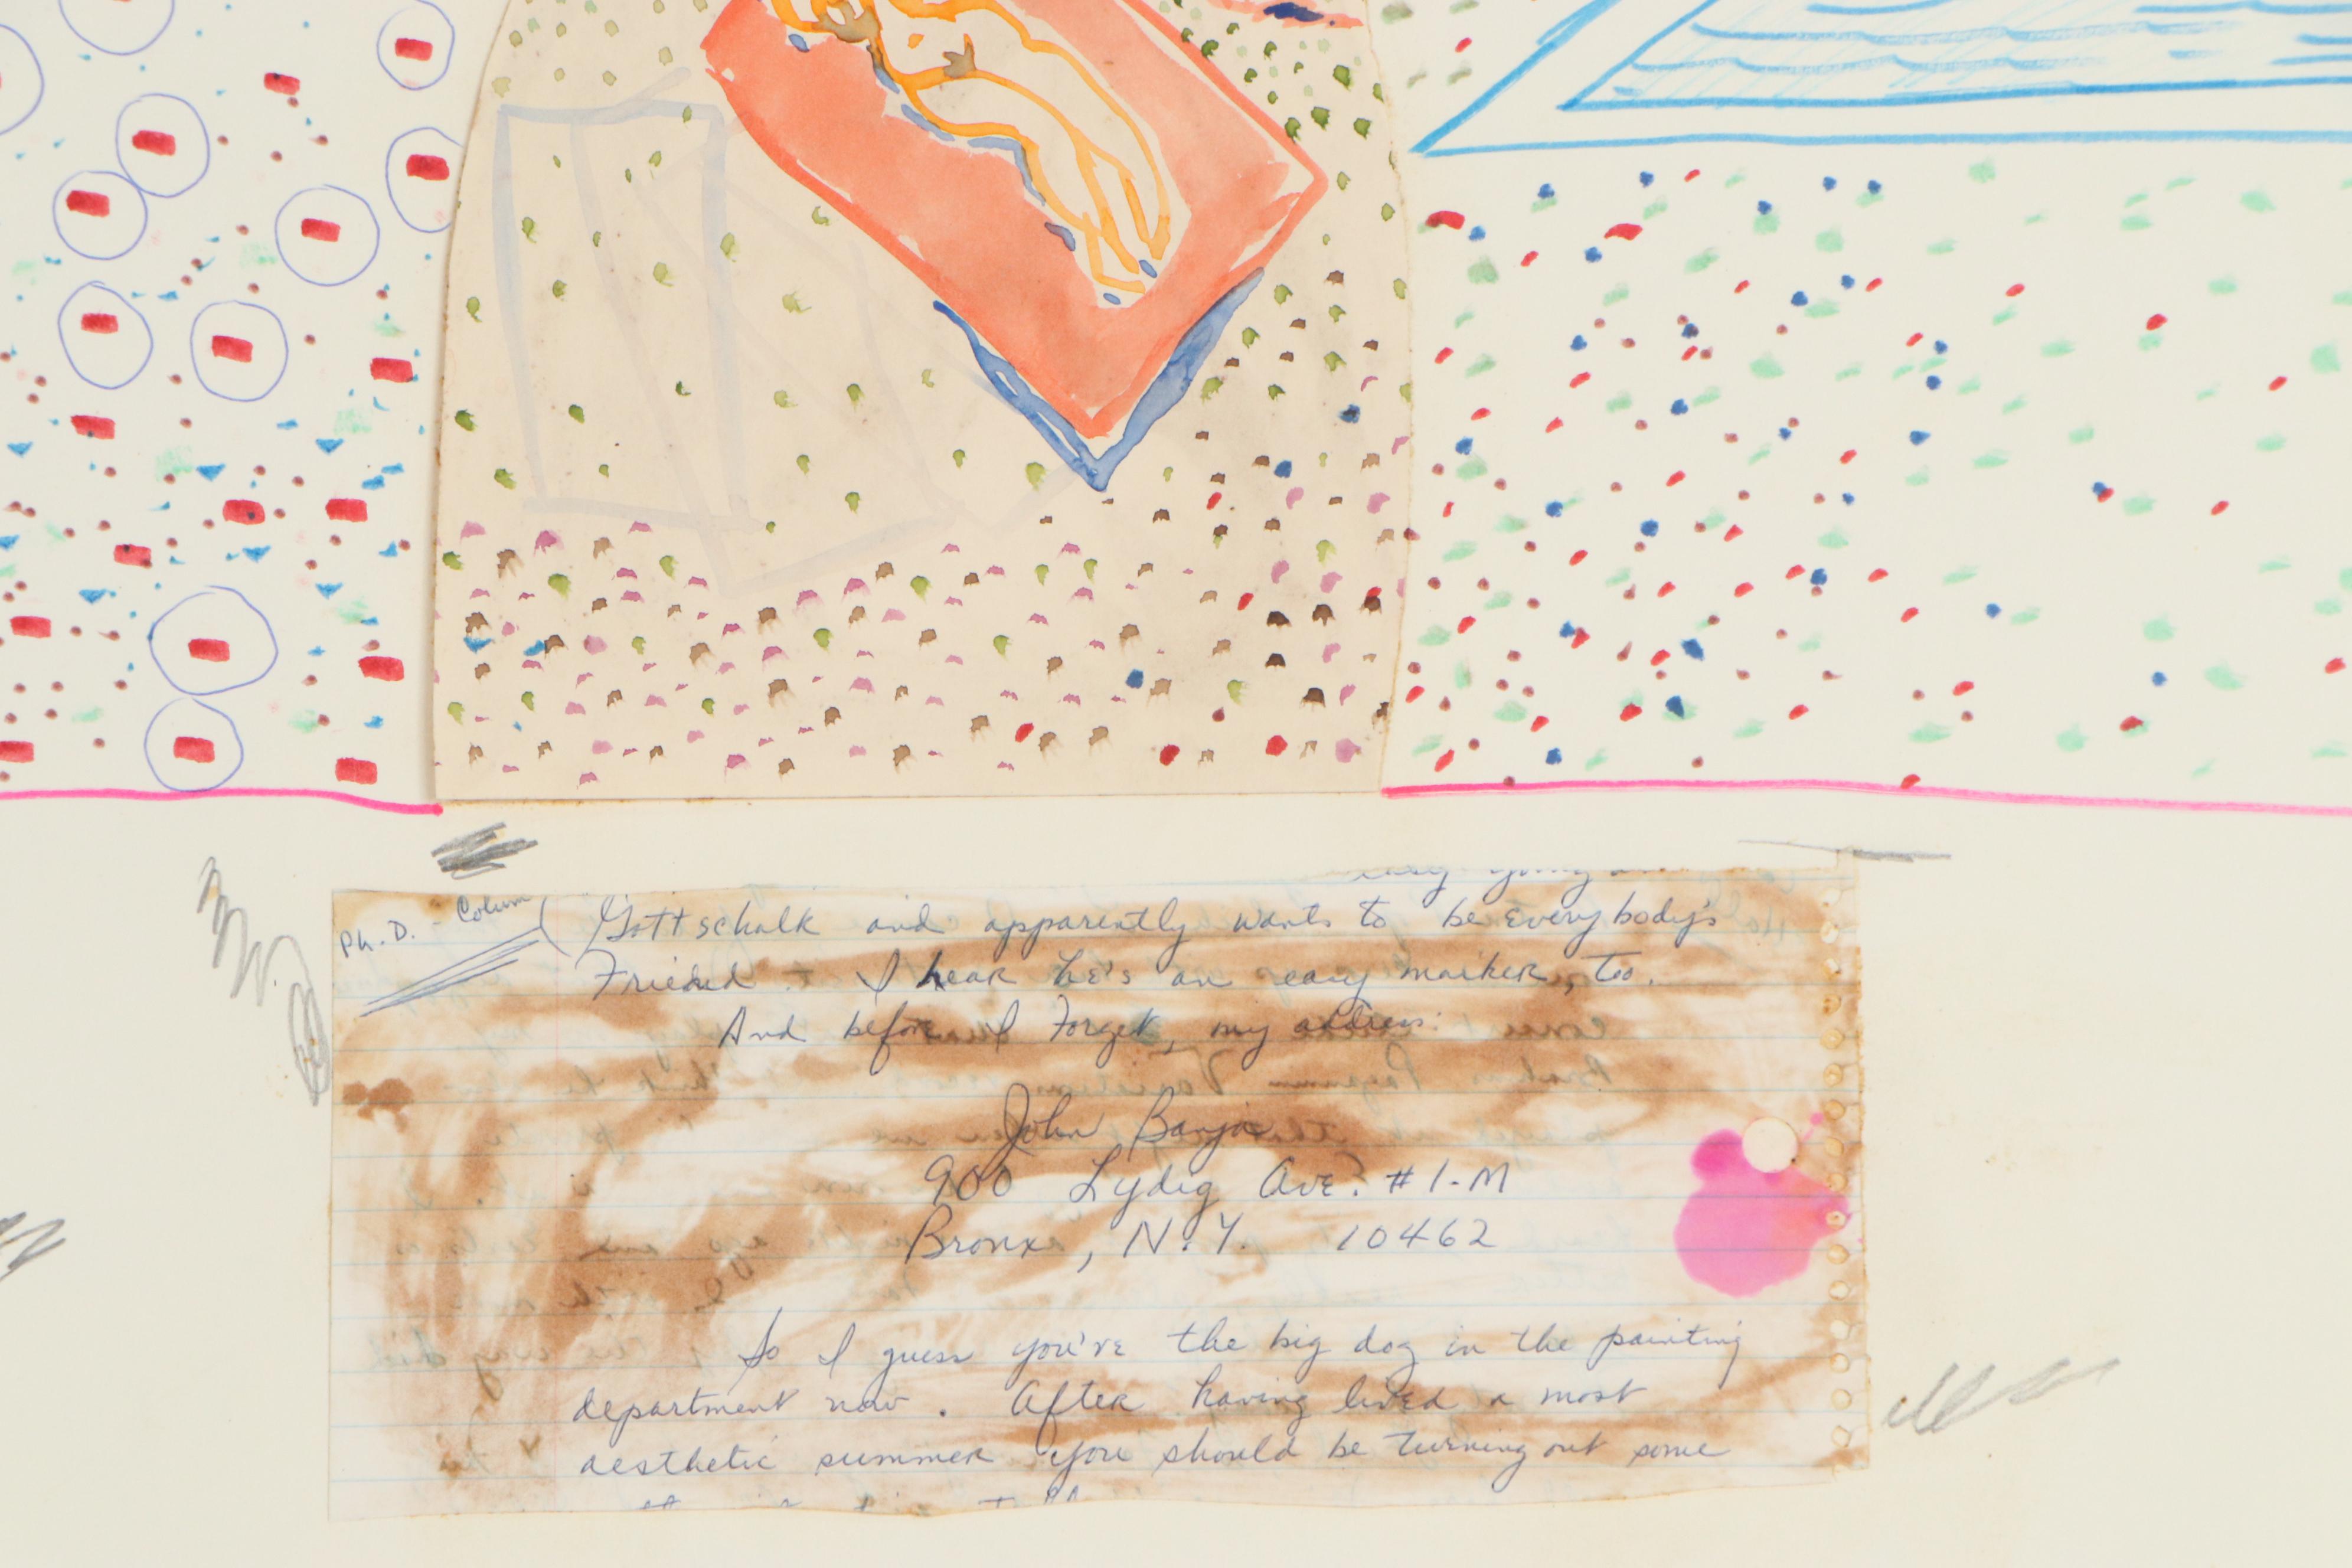 easy going
Ph.D. - Colum
Gottschalk and apparently wants to be everybody's
Friend. I hear he's an easy marker, too.
And before I forget, my address:
John Banja
900 Lydig Ave. #1-M
Bronx, N.Y. 10462
So I guess you've the big dog in the painting
department now. After having lived a most
aesthetic summer you should be turning out some